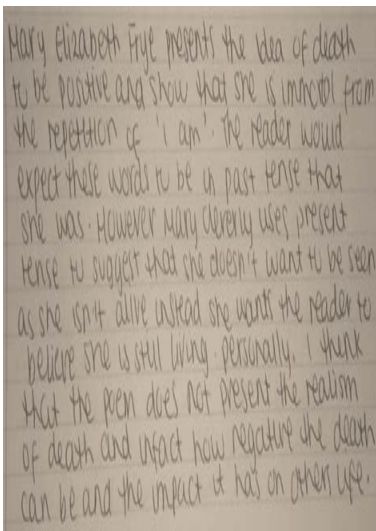 Mary Elizabeth Frye presents the idea of death
to be positive and show that she is immortol from
the repetition of 'i am'. The reader would
expect these words to be in past tense that
she was. However Mary cleverly uses present
tense to suggest that she doesn't want to be seen
as she isn't alive instead she wants the reader to
believe she is still living. personally, i think
that the poem does not present the realism
of death and infact how negative the death
can be and the impact it has on others life.